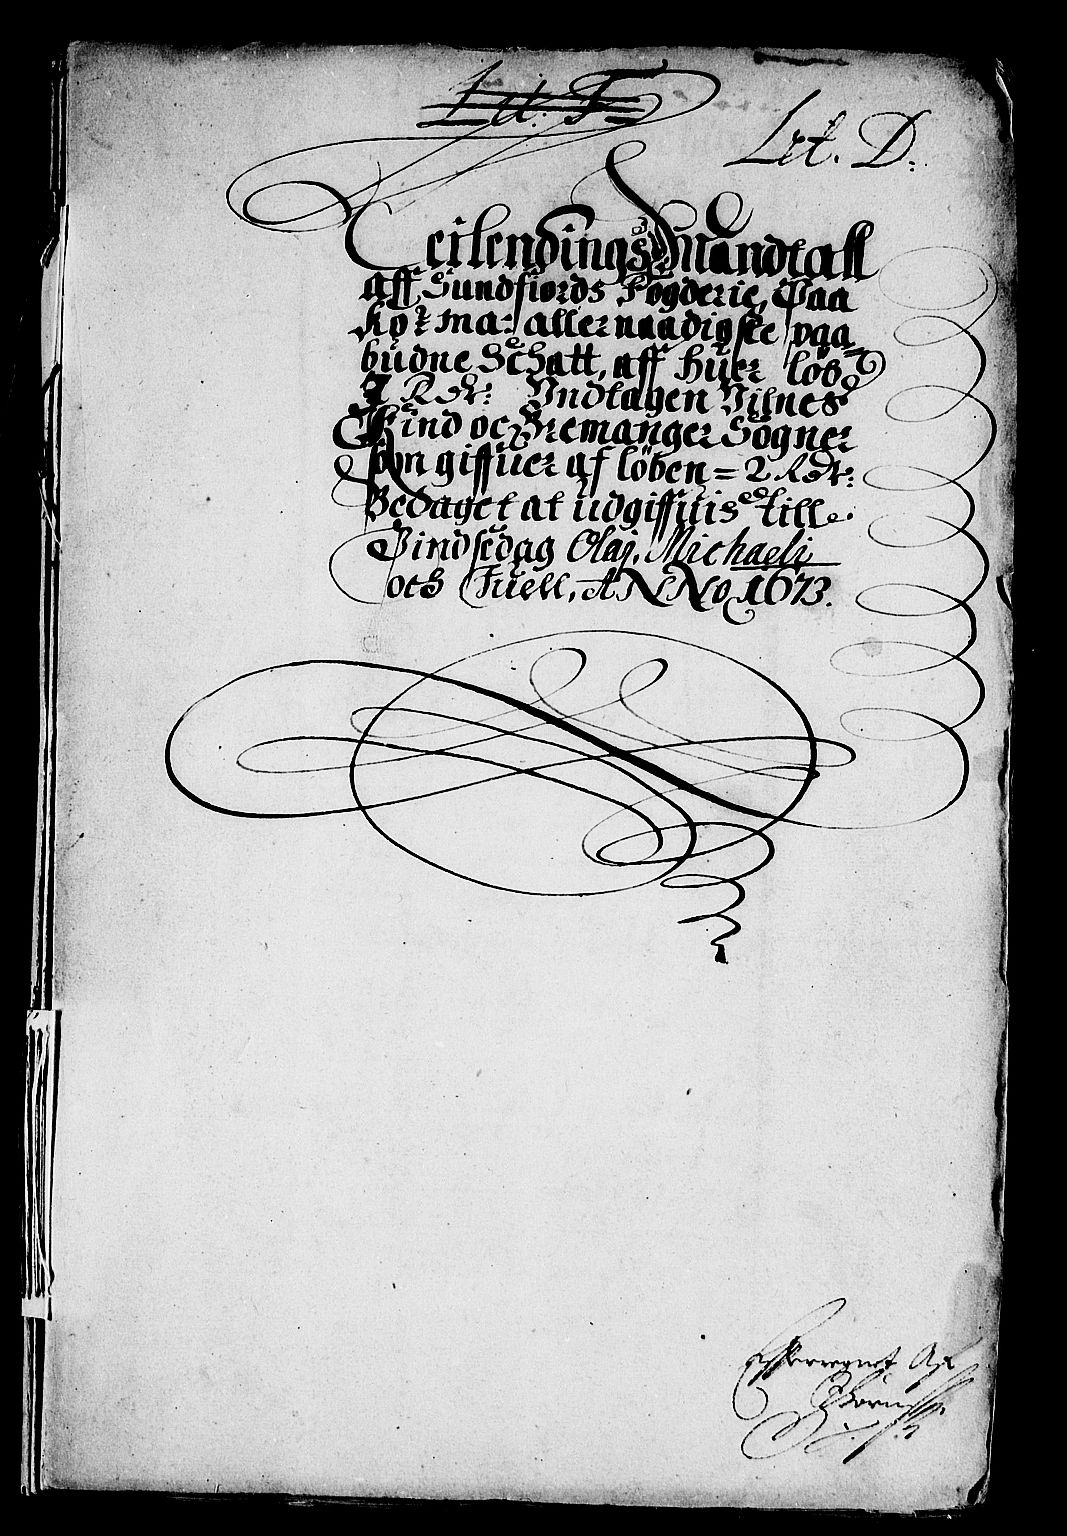 Lit. F
Lit. D:
Leilendings Mandtall
aff Sundfiords Fogderie, Paa
Ko: Ma: aller naadigste paa
budne Schatt, aff huer löb
1 Rdr: Vndtagen Vilnes
Kind oc Bremanger Sogner
som giffuer af löben = 2 Rdr:
Bedaget at udgiffuis till
Pindsedag Olaj. Michaeli
och Juell, ANNo 1673.
Efterregnet Af